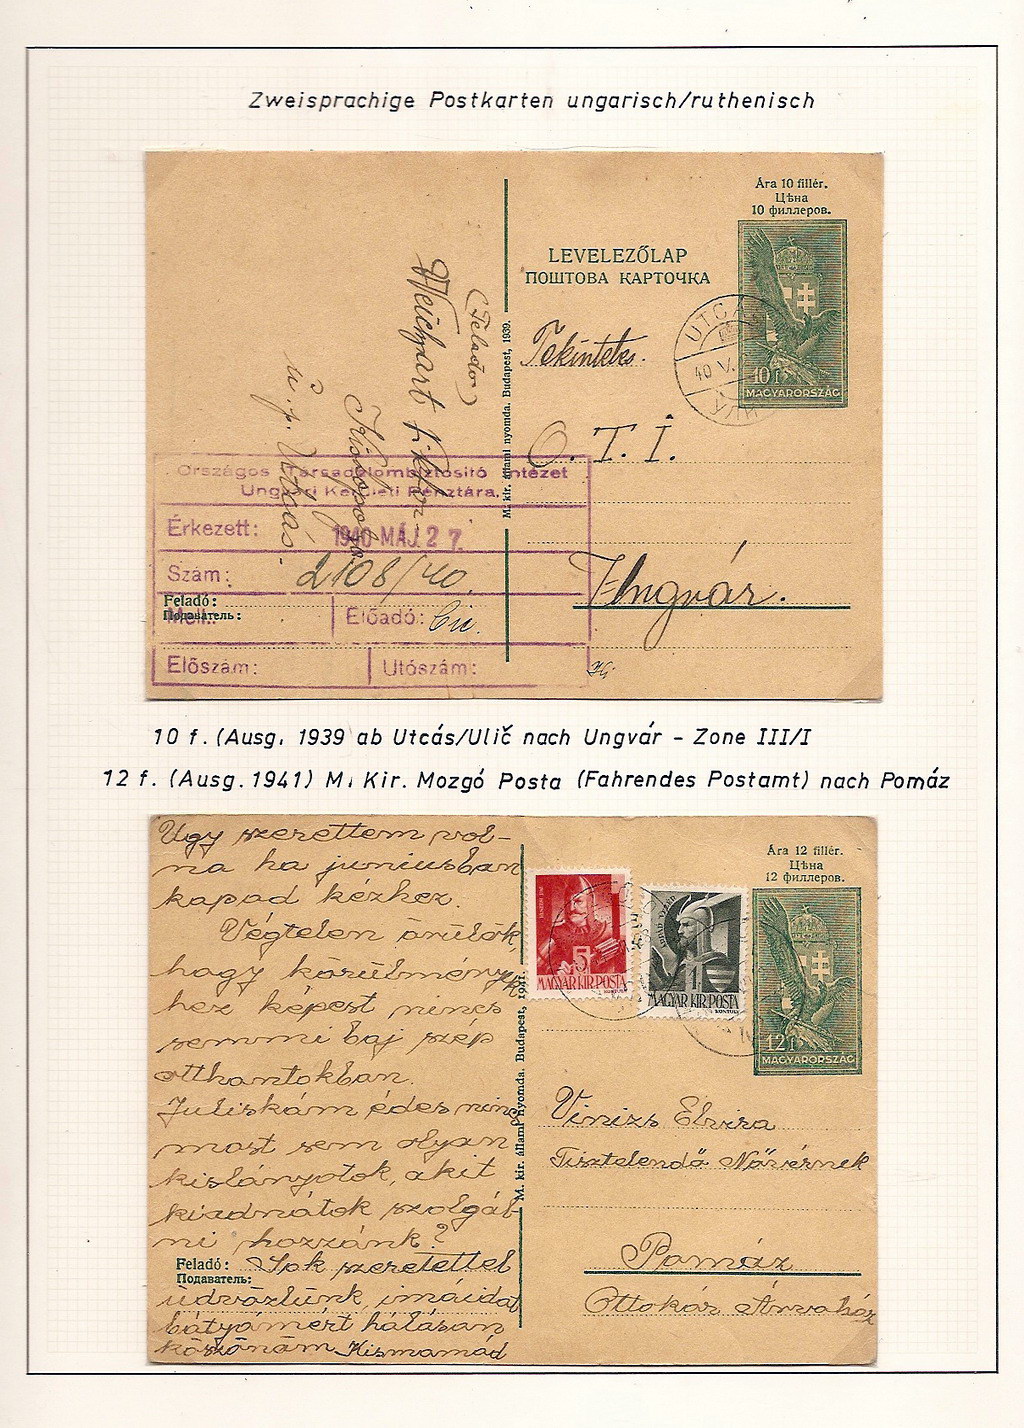 Zweisprachige Postkarten ungarisch/ruthenisch
Ára 10 fillér.
Цѣна
10 филлеров.
LEVELEZŐLAP
ПОШТОВА КАРТОЧКА
UTCÁS
40 V.
10 f
MAGYARORSZÁG
Tekintetes.
O. T. I.
Ungvár.
M. kir. állami nyomda. Budapest, 1939.
(Felado)
Weichpart Viktor
u. p. Utcás.
Országos Társadalombiztosító Intézet
Ungvári Kerületi Pénztára.
Érkezett: 1940 MÁJ 27.
Szám: 2108/40.
Feladó:
Подаватель:
Mell.:
Előadó:
Előszám:
Utószám:
10 f. (Ausg. 1939 ab Utcás/Ulič nach Ungvár - Zone III/I
12 f. (Ausg. 1941) M. Kir. Mozgó Posta (Fahrendes Postamt) nach Pomáz
Ugy szerettem vol-
na ha juniusban
kapad kézhez.
Végtelen örülök
hogy körülmények
hez képest nincs
semmi baj szép
otthontokban.
Juliskám édes nincs
most sem olyan
kislányotok, akit
kiadnátok szolgál-
ni hozzánk?
Feladó: Sok szeretettel
Подаватель:
üdvözlünk, imáidat
bátyámért hálásan
köszönöm Kismamád
M. kir. állami nyomda. Budapest, 1941.
Ára 12 fillér.
Цѣна
12 филлеров.
5
MAGYAR KIR POSTA
1
MAGYAR KIR POSTA
12 f
MAGYARORSZÁG
Vinizs Elvira
Tisztelendő Nővérnek
Pomáz
Ottokár Árvaház